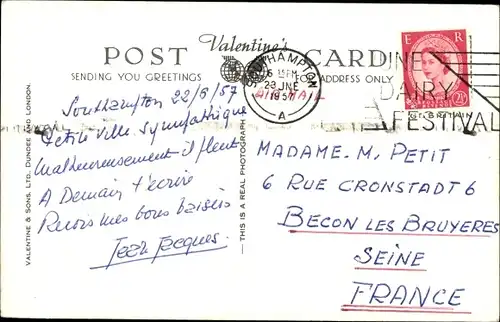 Valentine's
POST CARD
SENDING YOU GREETINGS
FOR ADDRESS ONLY
VALENTINE & SONS, LTD., DUNDEE AND LONDON.
THIS IS A REAL PHOTOGRAPH
SOUTHAMPTON
6 PM
23 JNE
1957
A
DAIRY
FESTIVAL
E R
POSTAGE REVENUE
2½D
Southampton 22/6/57
Petite ville sympathique
malheureusement il pleut
A Demain t'écrire
Reçois mes bons baisers
Jean Jacques
MADAME. M. PETIT
6 RUE CRONSTADT 6
BECON LES BRUYERES
SEINE
FRANCE